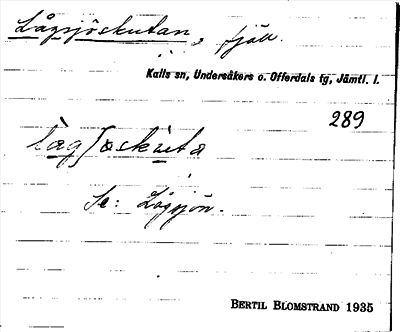 Lågsjöskutan, fjäll.
Kalls sn, Undersåkers o. Offerdals tg, Jämtl. l.
289
Se: Lågsjön.
BERTIL BLOMSTRAND 1935